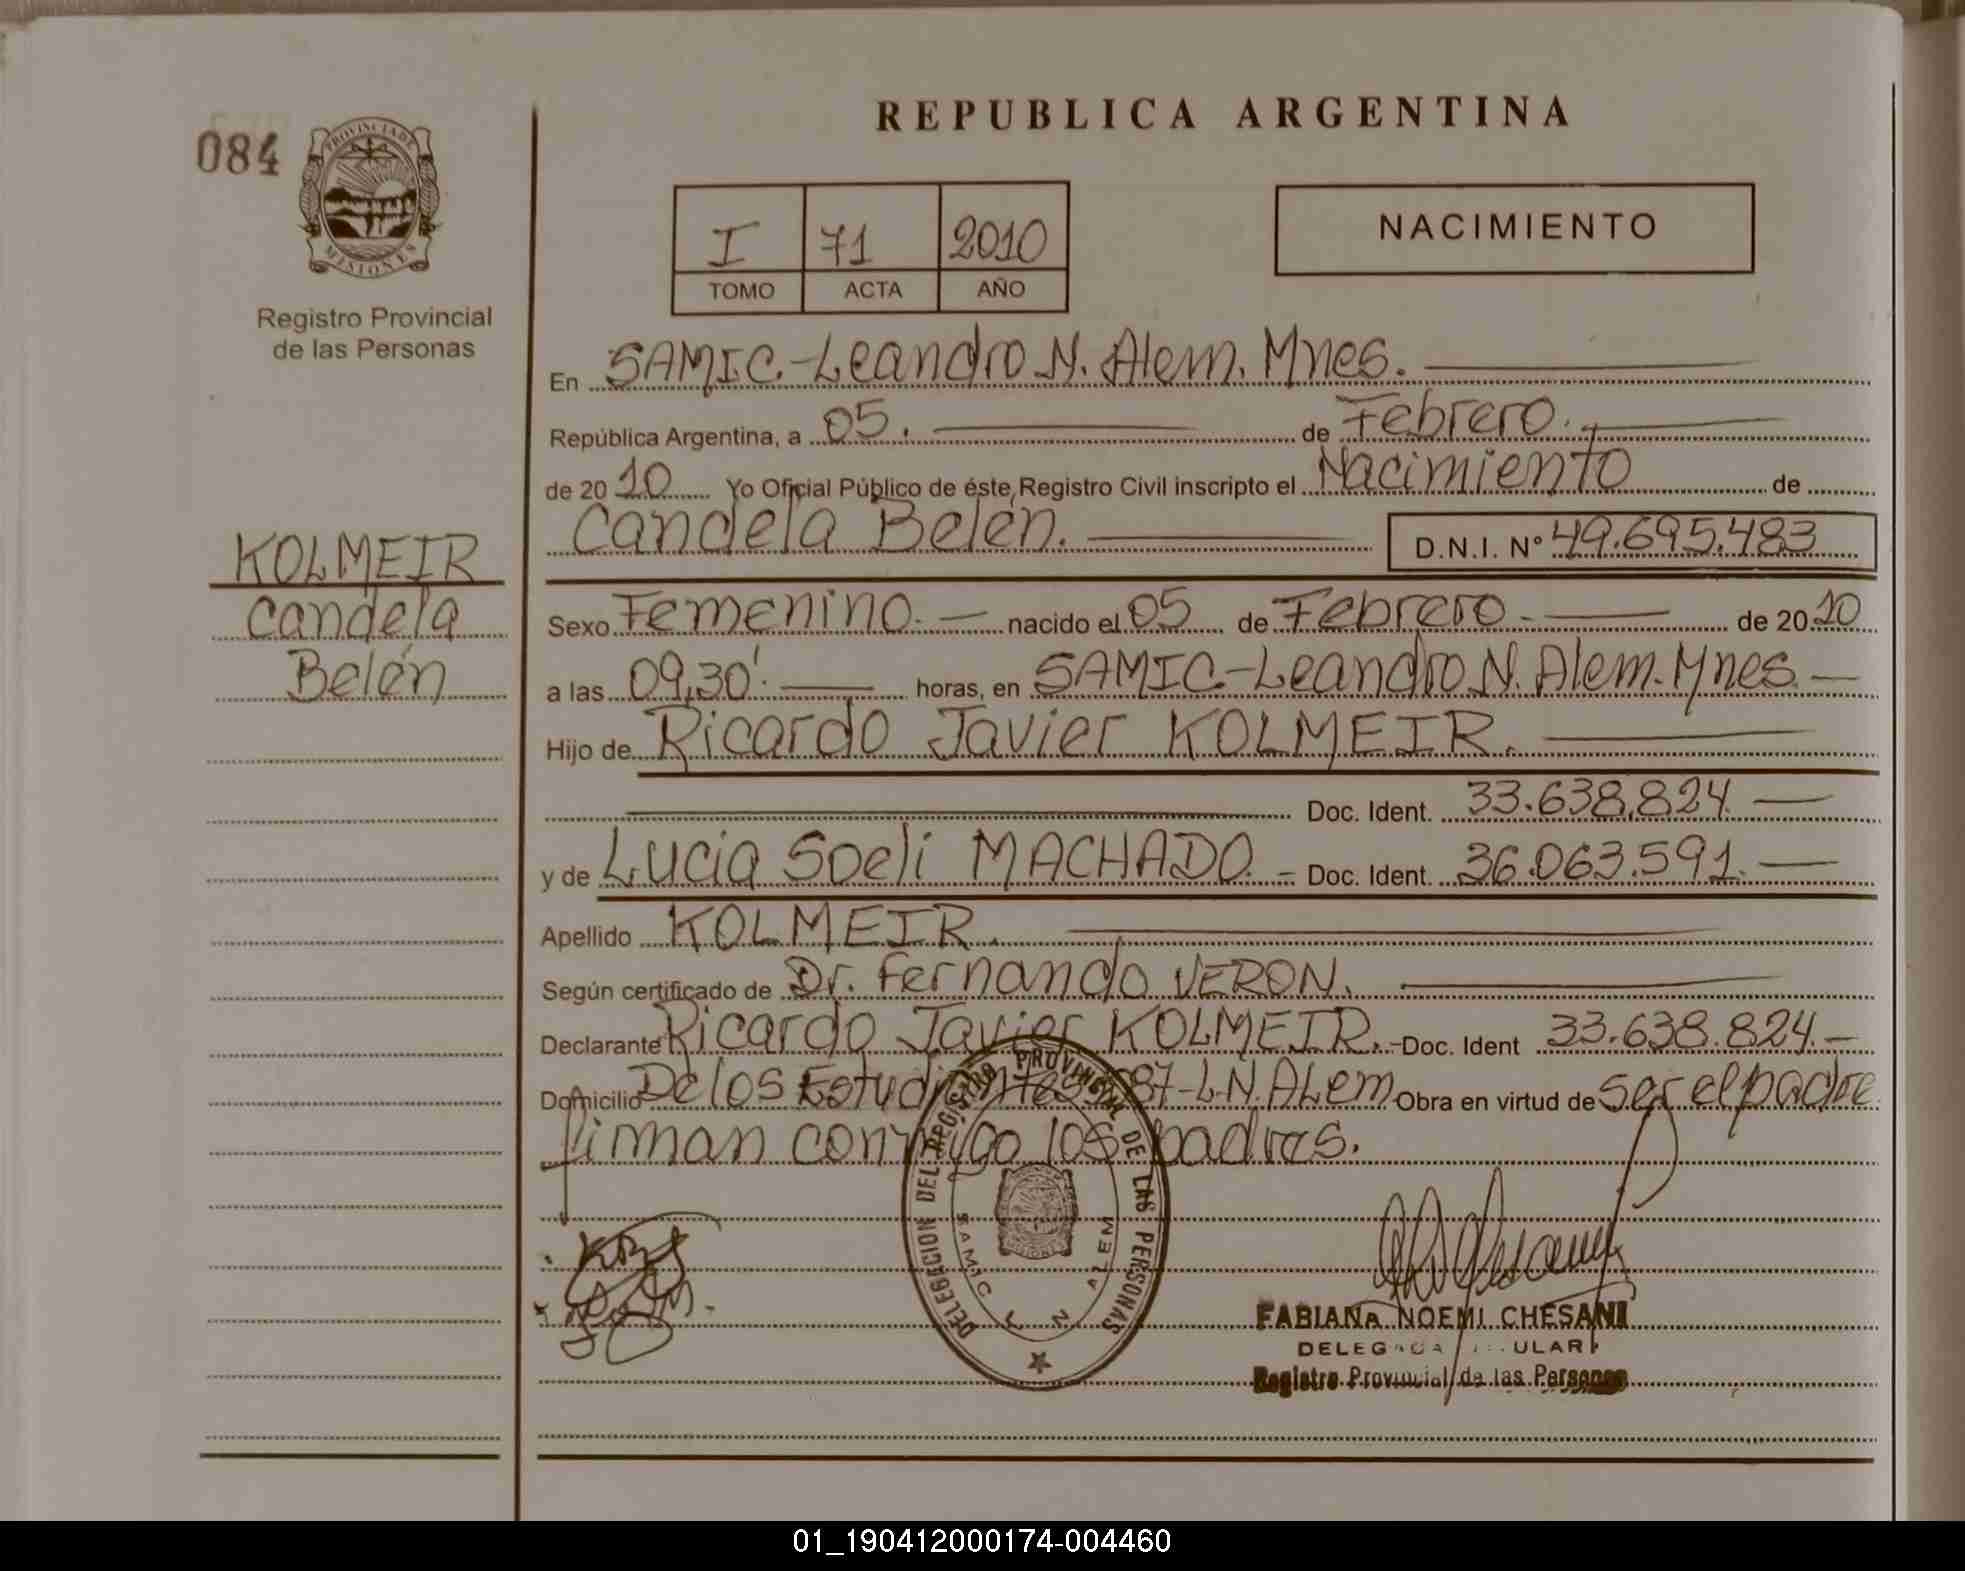 REPUBLICA ARGENTINA
084
PROVINCIA DE
MISIONES
Registro Provincial
de las Personas
I 71 2010
TOMO ACTA AÑO
NACIMIENTO
En SAMIC.-Leandro N. Alem. Mnes.
República Argentina, a 05. de Febrero.
de 20 10 Yo Oficial Público de éste Registro Civil inscripto el Nacimiento de
Candela Belén. D.N.I. Nº 49.695.483
KOLMEIR
Candela
Belén
Sexo Femenino. nacido el 05 de Febrero de 20 10
a las 09,30'. horas, en SAMIC-Leandro N. Alem. Mnes
Hijo de Ricardo Javier KOLMEIR.
Doc. Ident. 33.638.824.
y de Lucia Soeli MACHADO. Doc. Ident. 36.063.591.
Apellido KOLMEIR.
Según certificado de Dr. Fernando VERON.
Declarante Ricardo Javier KOLMEIR. Doc. Ident 33.638.824.
Domicilio De los Estudiantes 87-L.N.ALem Obra en virtud de ser el padre
firman conmigo los padres.
DELEGACION DEL REGISTRO PROVINCIAL DE LAS PERSONAS
SAMIC L N ALEM
MISIONES
FABIANA NOEMI CHESANI
Registro Provincial de las Personas
01_190412000174-004460